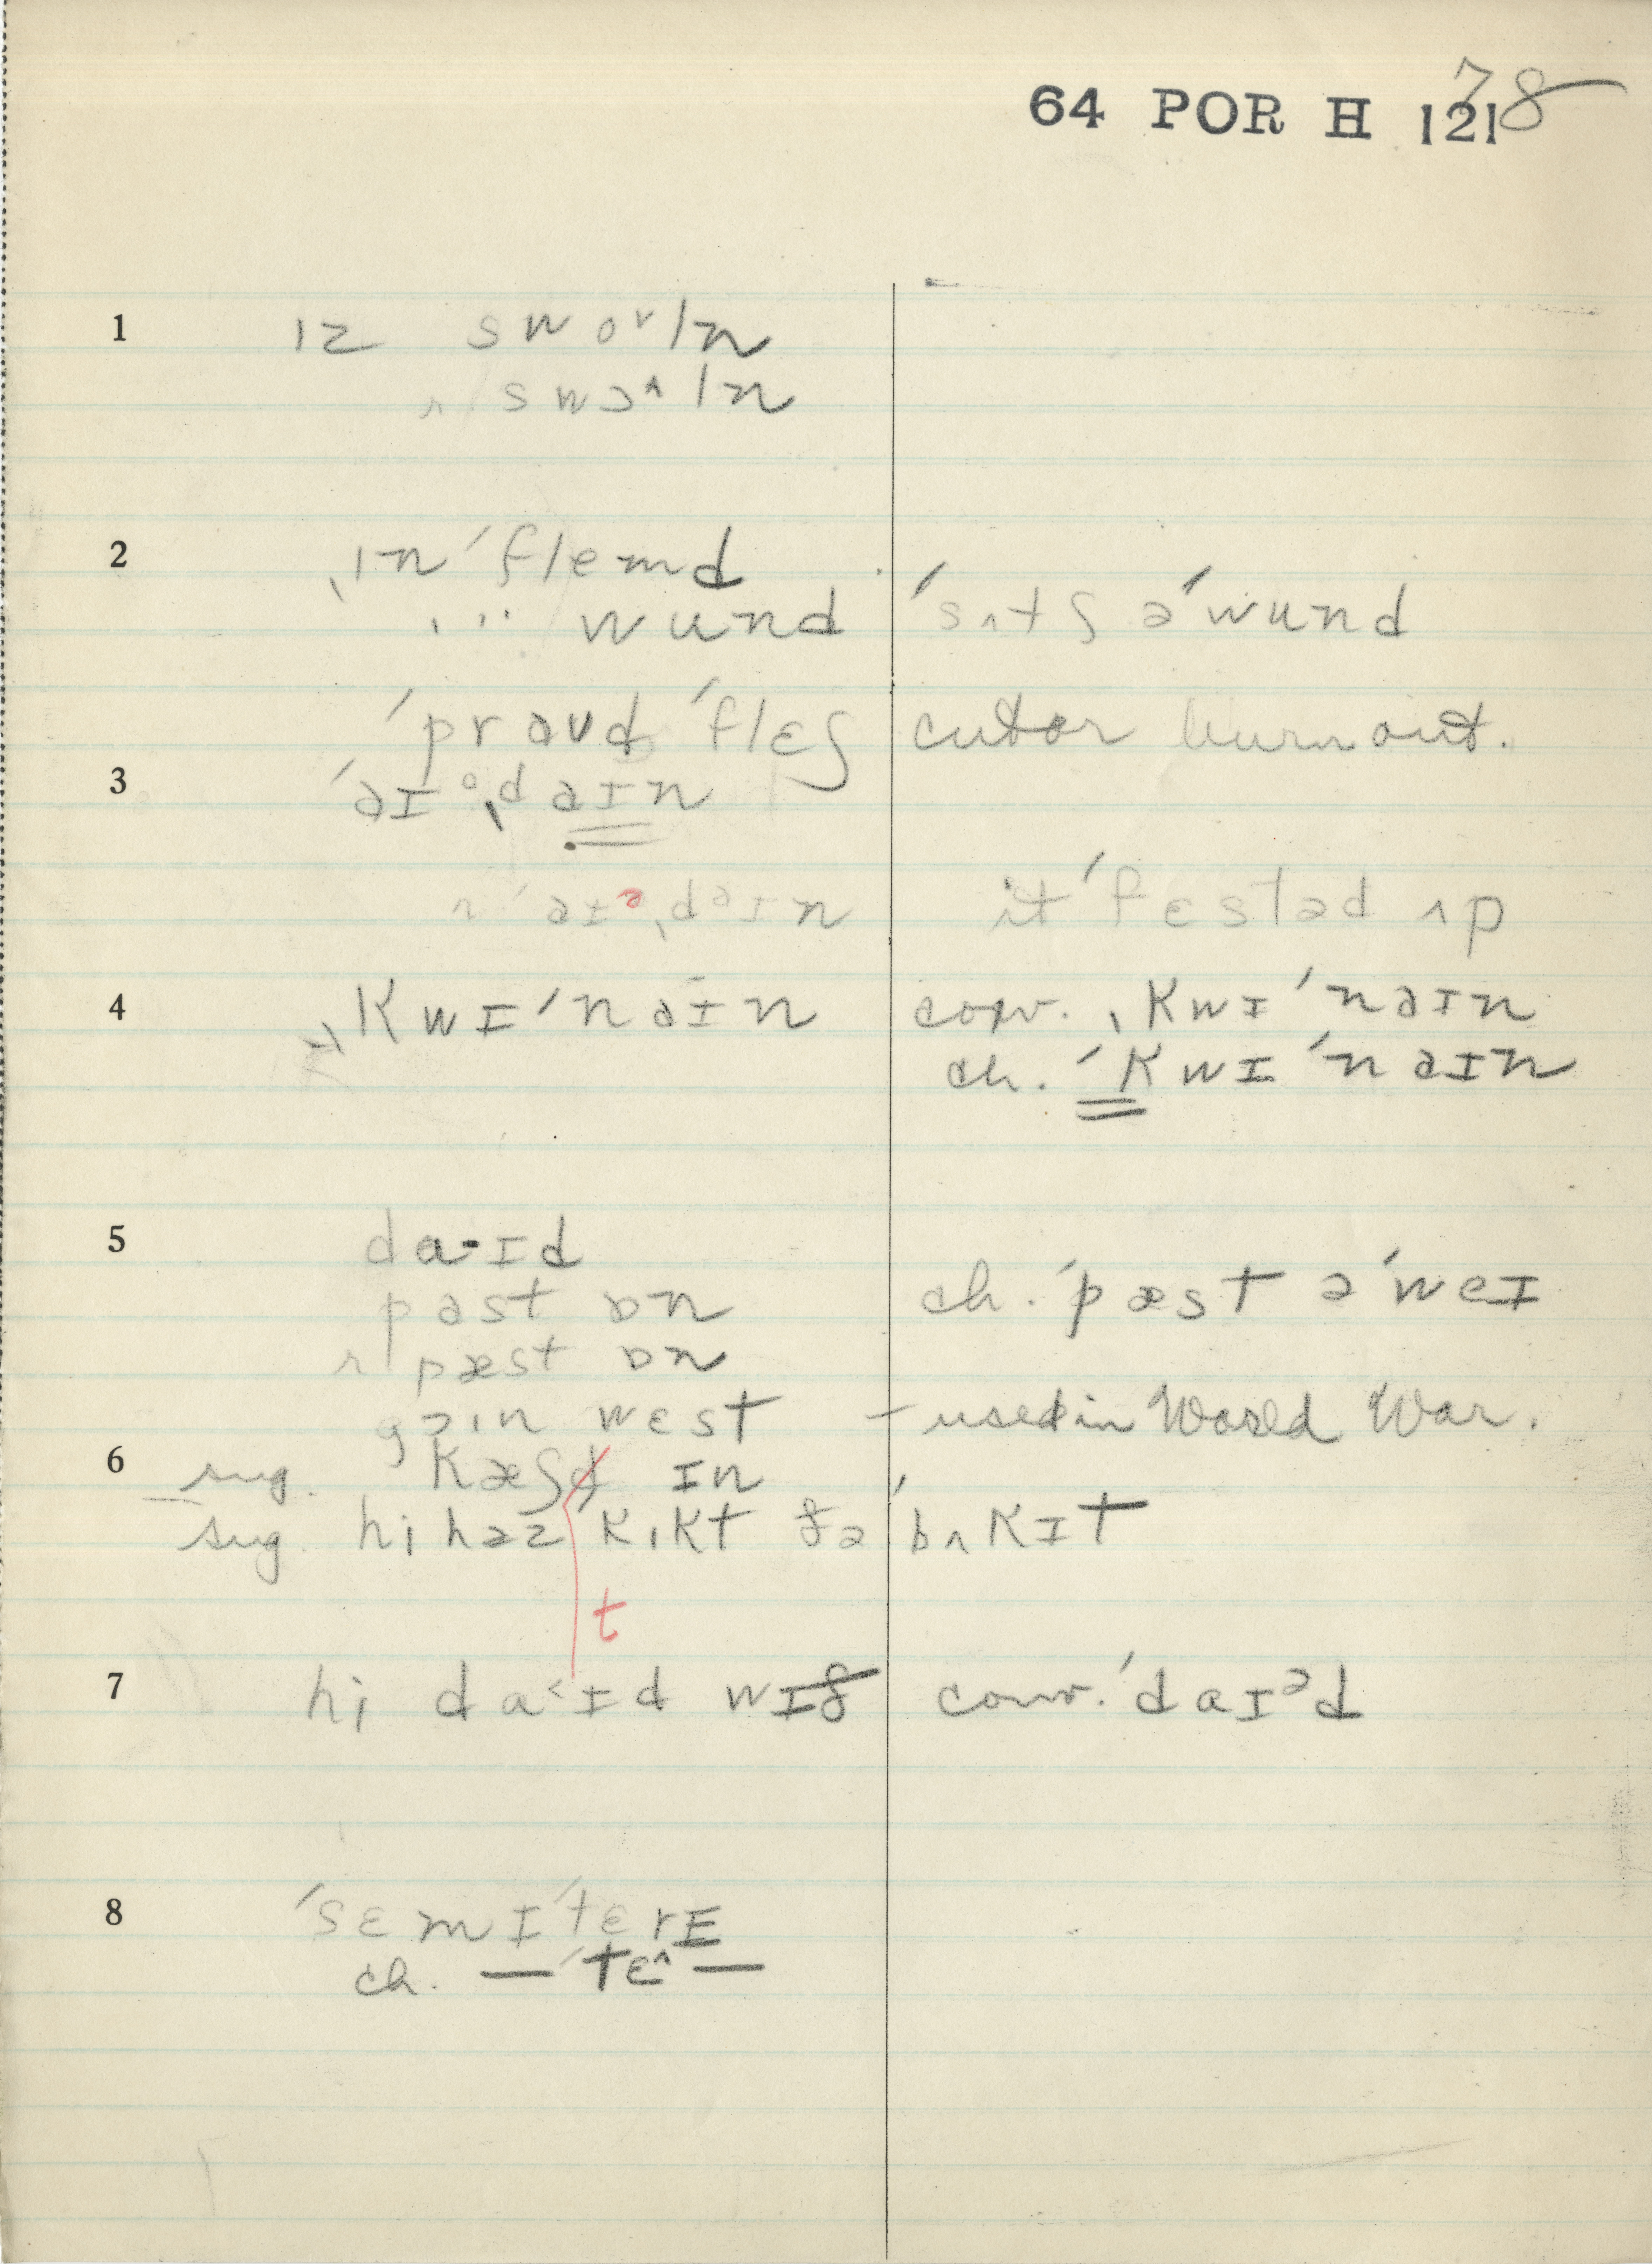 64 POR H 121 78
1 ɪz swoᵛln
r swɔ^ln
2 ˌɪnˈflemd
ˌ " wund ˈsʌtʃ əˈwund
ˈprəʊd ˈflɛʃ cut or burn out.
3 ˈəɪᵒˌdəɪn
r ˈəɪᵊˌdəɪn it ˈfɛstəd ʌp
4 ˌkwɪˈnəɪn conv. ˌkwɪˈnəɪn
ch. ˈkwɪˈnəɪn
5 da·ɪd
past ɒn ch. ˈpæst əˈweɪ
r pæst ɒn
gɔɪn wɛst – used in World War.
6 sug. kæʃd ɪn
sug. hi həz kɪkt ðə ˈbʌkɪt
t
7 hi da˂ɪd wɪð conv. ˈdaɪᵊd
8 ˈsɛmɪˈtɛrE
ch. — ˈtɛ^ —